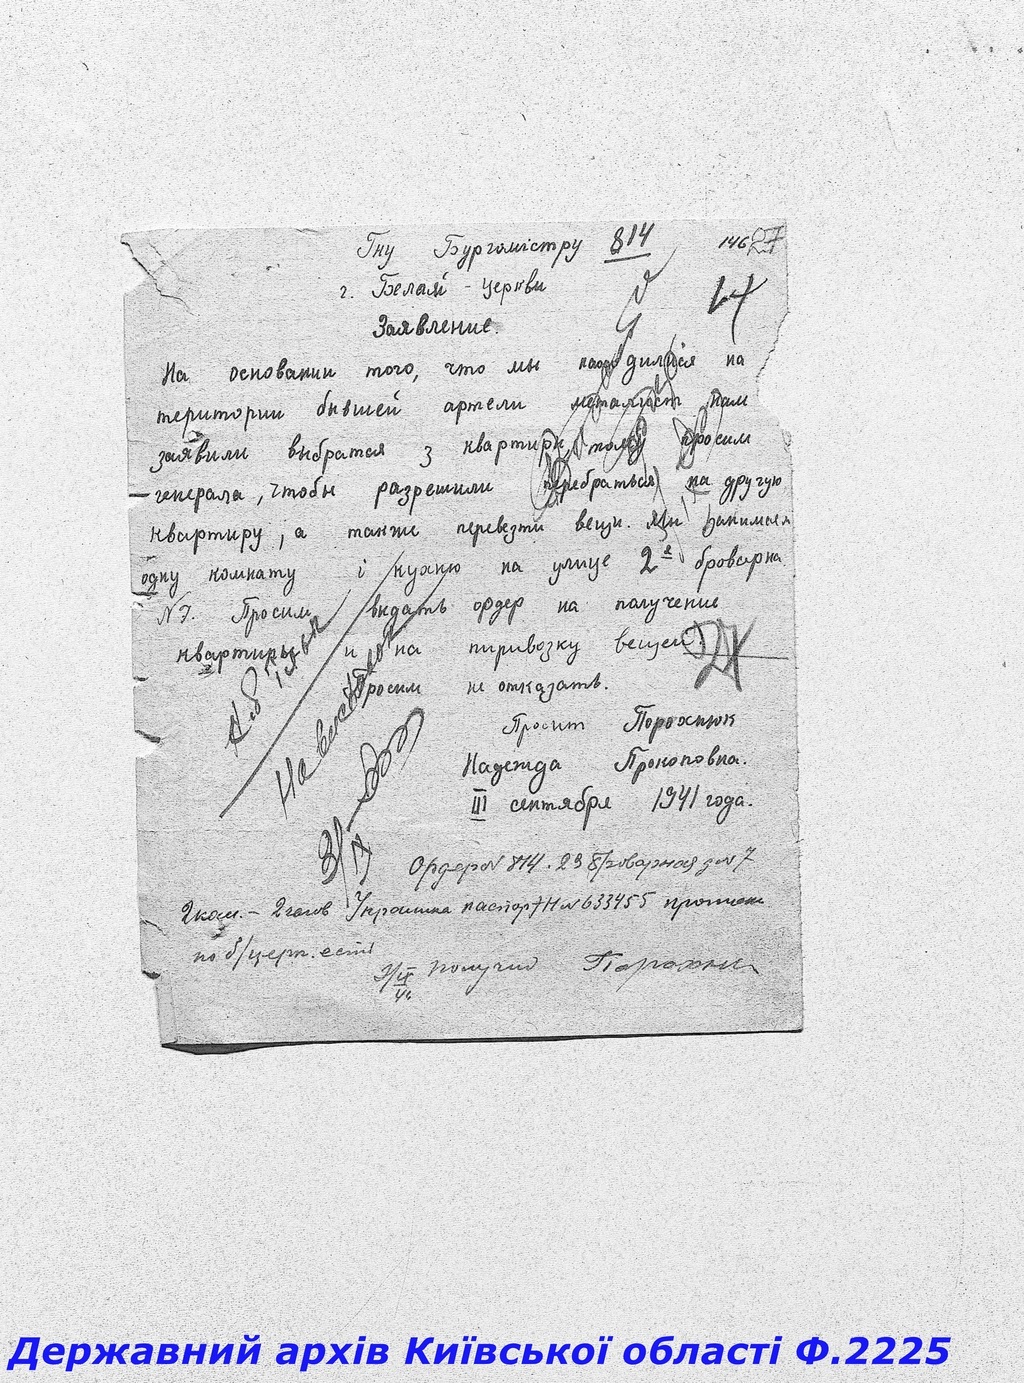 Гну Бургомістру 814 146 27
г. Белай - церкви 14
Заявление.
На основании того, что мы находилися на
територии бывшей артели металист нам
заявили выбратся з квартири, тому просим
генерала, чтобы разрешили перебраться на другую
квартиру, а также перевезти вещи. Мы занимаем
одну комнату і кухню на улице 2я броварна
№7. Просим выдать ордер на получение
квартиры и на пиривозку вещей.
Просим не отказать.
Просит Порохнюк
Надежда Прокоповна.
III сентября 1941 года.
3/IX
Ордер № 814. 2я б/роварная д № 7
2 ком. – Украинка паспорт № 633455
по б/церк. есть
3/IX 41 Получил